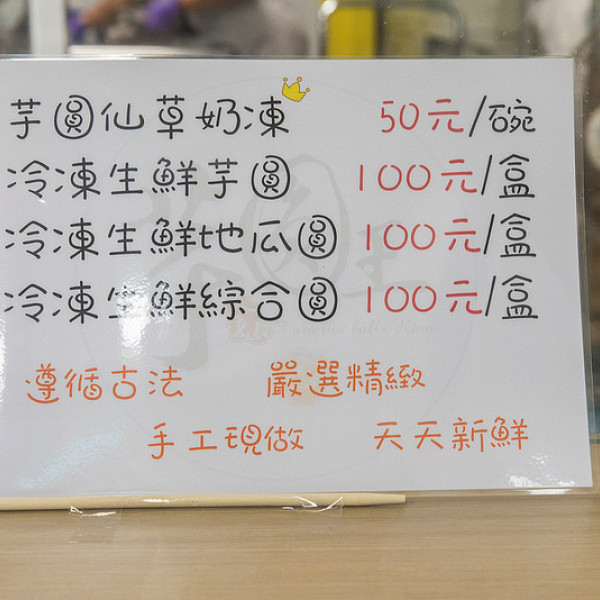 芋圓仙草奶凍 50元/碗
冷凍生鮮芋圓 100元/盒
冷凍生鮮地瓜圓 100元/盒
冷凍生鮮綜合圓 100元/盒
遵循古法 嚴選精緻
手工現做 天天新鮮